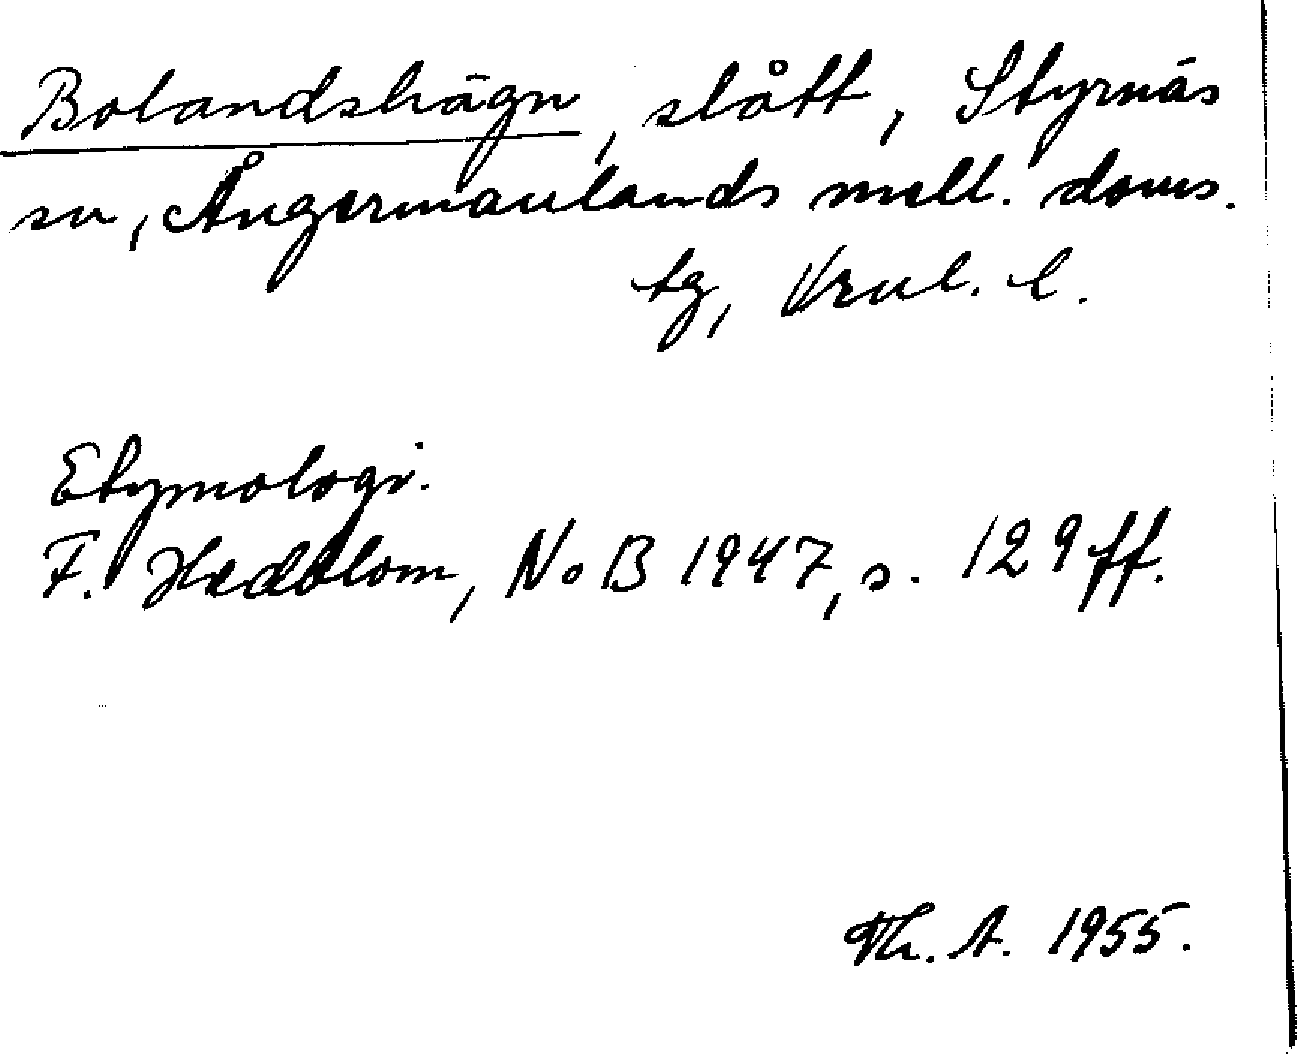 Bolandshägn, slått, Styrnäs
sn, Ångermanlands mell. doms.
tg, Vrnl. l.
Etymologi.
F. Hedblom, NoB 1947, s. 129 ff.
Th. A. 1955.